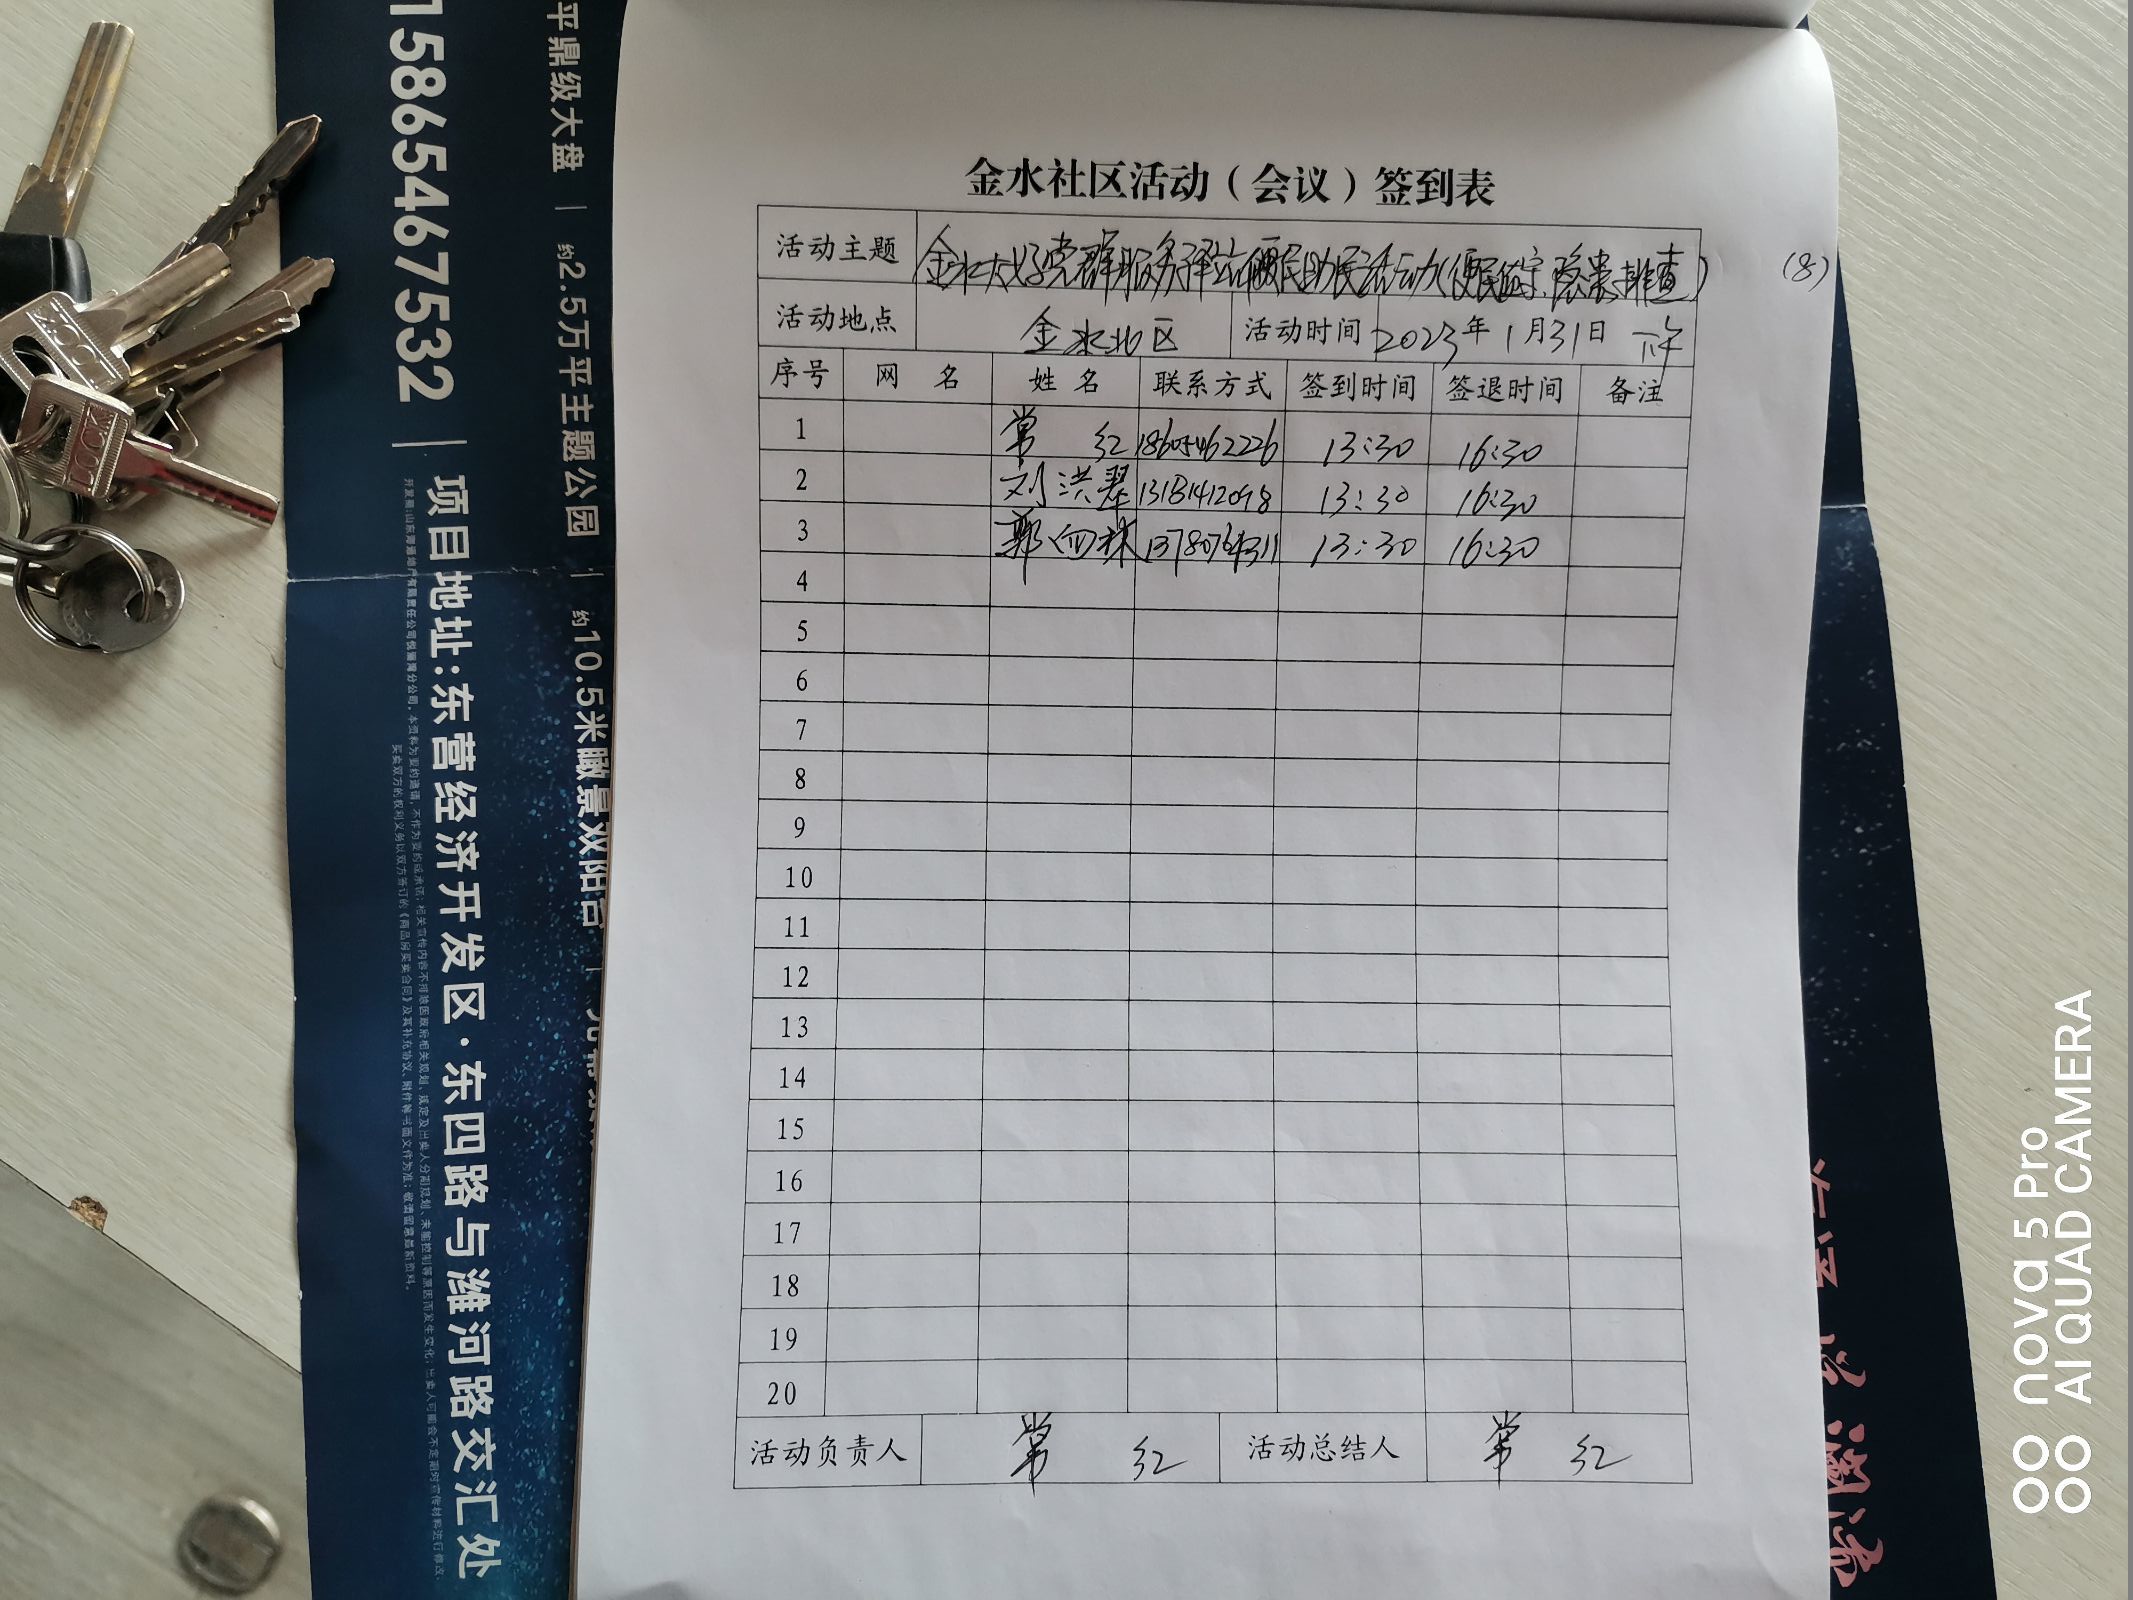 金水社区活动（会议）签到表
活动主题 金水大姐党群服务驿站便民助民活动（便民值守、隐患排查） （8）
活动地点 金水北区 活动时间 2023年1月31日 下午
序号 网名 姓名 联系方式 签到时间 签退时间 备注
1 常红 18605462226 13:30 16:30
2 刘洪翠 13181412098 13:30 16:30
3 郭向林 13:30 16:30
4
5
6
7
8
9
10
11
12
13
14
15
16
17
18
19
20
活动负责人 常红 活动总结人 常红
15865467532
项目地址:东营经济开发区·东四路与潍河路交汇处
平鼎级大盘｜约2.5万平主题公园｜约10.5米瞰景双阳台
nova 5 Pro
AI QUAD CAMERA